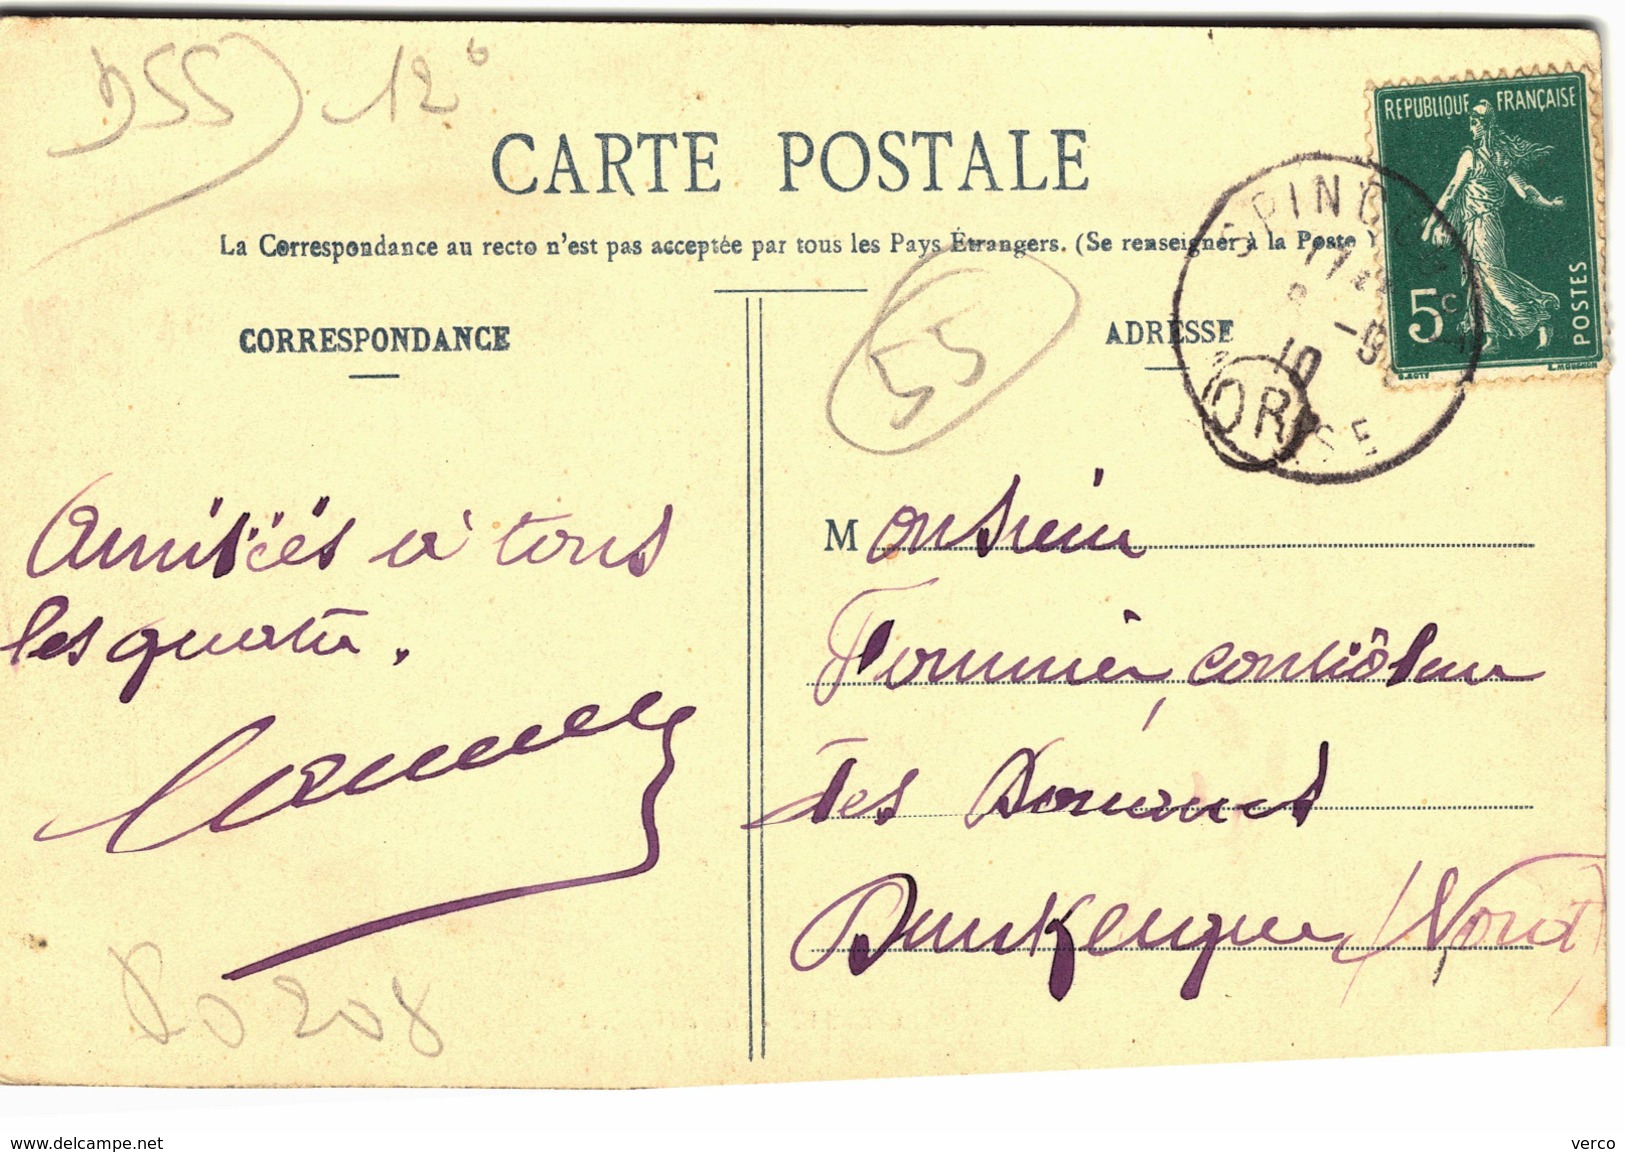 DSS) 12⁶
CARTE POSTALE
La Correspondance au recto n'est pas acceptée par tous les Pays Étrangers. (Se renseigner à la Poste)
CORRESPONDANCE
55
ADRESSE
REPUBLIQUE FRANÇAISE
5c
POSTES
E. MOUCHON
10
OR
SE
Amitiés à tous
les quatre.
Monsieur
Fournier, contrôleur
des Douanes
Dunkerque (Nord)
208
www.delcampe.net
verco